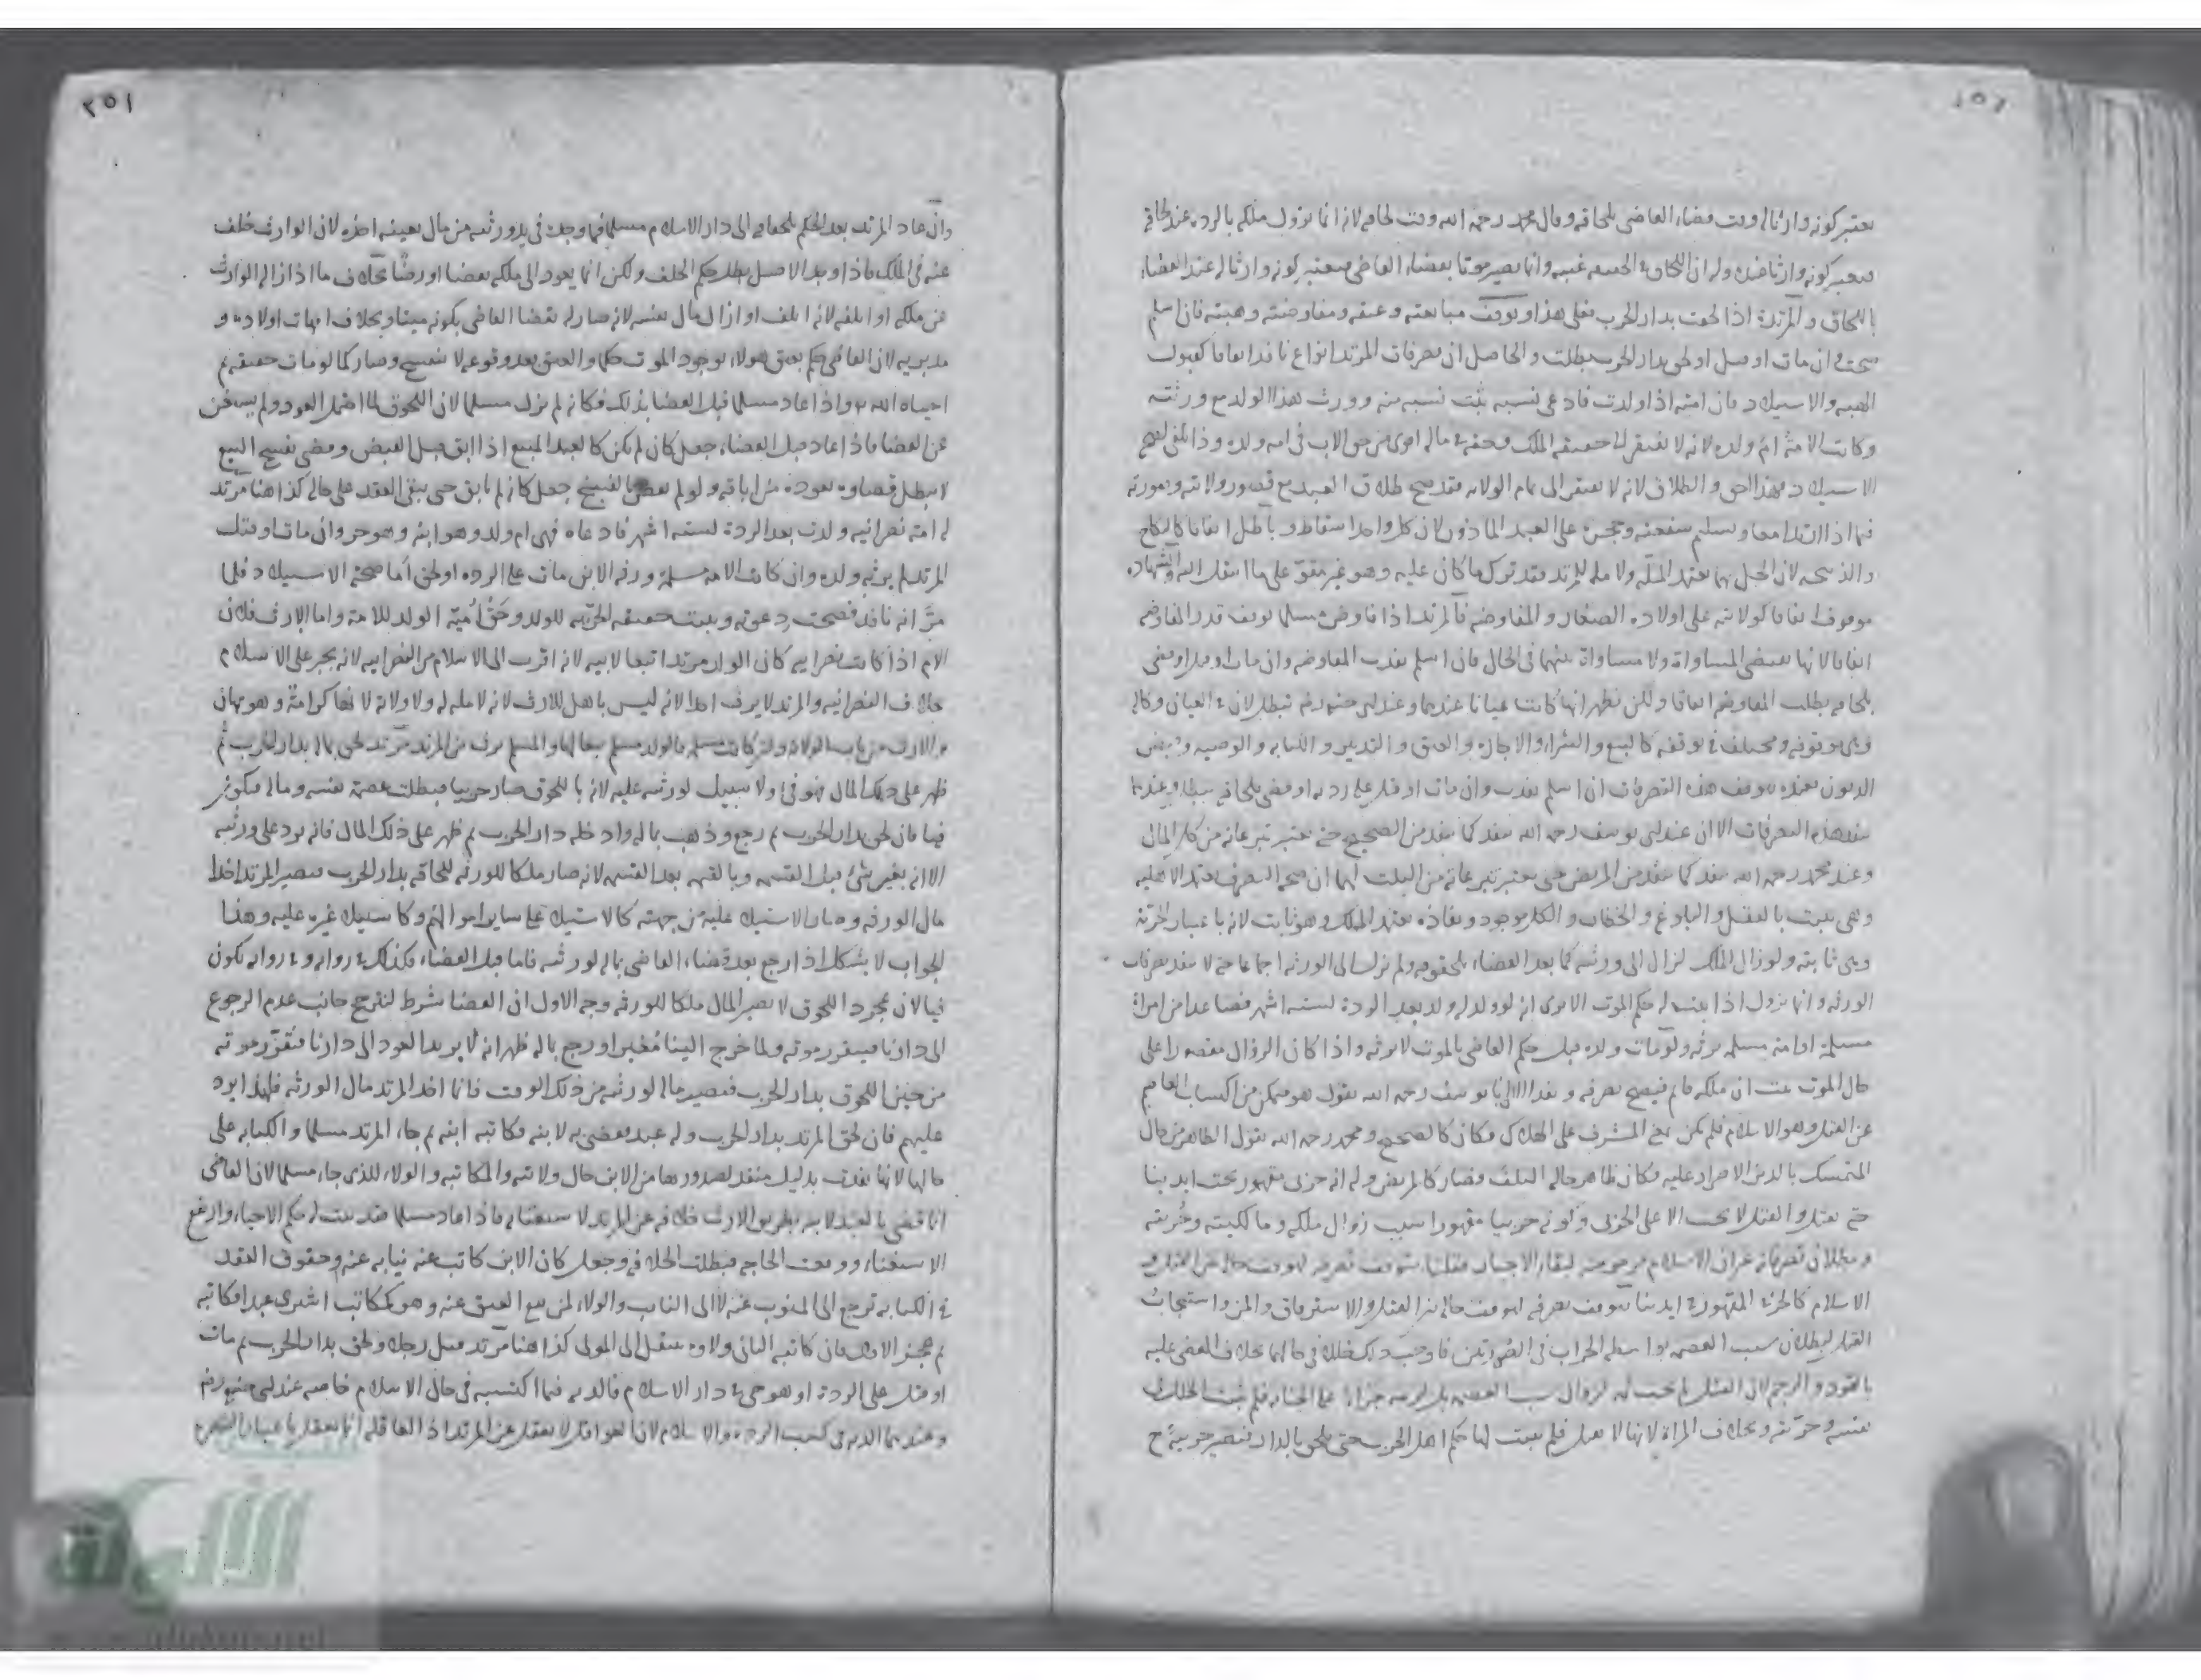 يعتبر كونه وارثا له وقت قضاء القاضي بلحاقه وقال محمد رحمه الله وقت لحاقه لانه انما يزول ملكه بالردة عند لحاقه
فيعتبر كونه وارثا عنده وله ان اللحاق في الحقيقة غيبة وانما يصير موتا بقضاء القاضي فيعتبر كونه وارثا له عند القضاء
باللحاق والمرتدة اذا لحقت بدار الحرب فعلى هذا وتوقف مبايعته وعتقه ومفاوضته وهبته فان اسلم
صحت وان مات او قتل او لحق بدار الحرب بطلت والحاصل ان تصرفات المرتد انواع نافذ اتفاقا كقبول
الهبة والاستيلاد فان امته اذا ولدت فادعى نسبه ثبت نسبه منه وورث هذا الولد مع ورثته
وكانت الامة ام ولده لانه لا يفتقر الى حقيقة الملك وحقه في ماله اقوى من حق الاب في امة ولده وذا يكفي لصحة
الاستيلاد فهذا احق والطلاق لانه لا يفتقر الى تمام الولاية فقد صح طلاق العبد مع قصور ولايته وصورته
فيما اذا ارتدا معا وتسليم شفعته وحجره على العبد الماذون لان كل واحد اسقاط وباطل اتفاقا كالنكاح
والذبيحة لان الحل بهما يعتمد الملة ولا ملة للمرتد فقد ترك ما كان عليه وهو غير مقر على ما انتقل اليه والشهادة
موقوف اتفاقا كولايته على اولاده الصغار والمفاوضة فالمرتد اذا فاوض مسلما توقف قدر المفاوضة
اتفاقا لانها تقتضي المساواة ولا مساواة بينهما في الحال فان اسلم نفذت المفاوضة وان مات او قتل او قضي
بلحاقه بطلت المفاوضة اتفاقا ولكن تظهر انها كانت عنانا عندهما وعند ابي حنيفة رضه تبطل لان في العنان وكالة
وهي موقوفة ومختلف في توقفه كالبيع والشراء والاجارة والعتق والتدبير والكتابة والوصية وقبض
الديون فعنده توقف هذه التصرفات ان اسلم نفذت وان مات او قتل على ردته او قضي بلحاقه بطلت وعندهما
تنفذ هذه التصرفات الا ان عند ابي يوسف رحمه الله تنفذ كما تنفذ من الصحيح حتى تعتبر تبرعاته من كل المال
وعند محمد رحمه الله تنفذ كما تنفذ من المريض حتى يعتبر تبرعاته من الثلث لهما ان صحة التصرف تعتمد الاهلية
وهي تثبت بالعقل والبلوغ والخطاب والكل موجود ونفاذه يعتمد الملك وهو ثابت لانه باعتبار الحرية
وهي ثابتة ولو زال الملك لزال الى ورثته كما بعد القضاء بلحوقه ولم يزل الى الورثة اجماعا حتى لا ينفذ تصرفات
الورثة وانما يزول اذا ثبت له حكم الموت الا ترى انه لو ولد له ولد بعد الردة لستة اشهر فصاعدا من امراة
مسلمة او امة مسلمة يرثه ولو مات ولده قبل حكم القاضي بالموت لا يرثه واذا كان الزوال مقصورا على
حال الموت ثبت ان ملكه قائم فيصح تصرفه وينفذ الا ان ابا يوسف رحمه الله يقول هو متمكن من اكتساب العاصم
عن القتل وهو الاسلام فلم يكن في المشرف على الهلاك فكان كالصحيح ومحمد رحمه الله يقول الظاهر من حال
المتمسك بالدين الاصرار عليه فكان ظاهر حاله التلف فصار كالمريض وله انه حربي مقهور تحت ايدينا
حتى يقتل والقتل لا يجب الا على الحربي وكونه حربيا مقهورا سبب زوال ملكه ومالكيته وحريته
الاسلام كالحربي المقهور في ايدينا يتوقف تصرفه لتوقف حاله بين القتل والاسترقاق والمن واستحقاق
القتل لبطلان سبب العصمة بواسطة الحراب في الصورتين فاوجب ذلك خللا في حالهما بخلاف المقضي عليه
بالقود والرجم لان القتل لم يجب ثمه لزوال سبب العصمة بل لزمه جزاء على الجناية فلم يثبت الخلل في
نفسه وحريته وبخلاف المراة لانها لا تقتل فلم يثبت لها حكم اهل الحرب حتى تلحق بالدار فتصير حربية ح
٢٥١
وان عاد المرتد بعد الحكم بلحاقه الى دار الاسلام مسلما فما وجده في يد ورثته من مال بعينه اخذه لان الوارث خلف
عنه في الملك فاذا وجد الاصل بطل حكم الخلف ولكن انما يعود الى ملكه بقضاء او رضا بخلاف ما اذا ازاله الوارث
عن ملكه او اتلفه لانه اتلف او ازال مال نفسه لانه صار له بقضاء القاضي بكونه ميتا وبخلاف امهات اولاده و
مدبريه لان القاضي حكم بعتق هولاء بوجود الموت حكما والعتق بعد وقوعه لا ينفسخ وصار كما لو مات حقيقة ثم
احياه الله واذا عاد مسلما قبل القضاء بذلك فكانه لم يزل مسلما لان اللحوق لما احتمل العود ولم يستغن
عن القضاء فاذا عاد قبل القضاء جعل كان لم يكن كالعبد المبيع اذا ابق قبل القبض وقضي بفسخ البيع
لا يبطل قضاوه بعوده من اباقه ولو لم يقض بالفسخ جعل كانه لم يابق حتى يبقى العقد على حاله كذا هنا مرتد
له امة نصرانية ولدت بعد الردة لستة اشهر فادعاه فهي ام ولد وهو ابنه وهو حر وان مات او قتل
المرتد لم يرثه ولده وان كانت الامة مسلمة ورثه الابن مات على الردة او لحق اما صحة الاستيلاد فلما
مر انه نافذ فصحت دعوته ويثبت حقيقة الحرية للولد وحق امية الولد للامة واما الارث فلان
الام اذا كانت نصرانية كان الولد مرتدا تبعا لابيه لانه اقرب الى الاسلام من النصرانية لانه يجبر على الاسلام
بخلاف النصرانية والمرتد لا يرث احدا لانه ليس باهل للارث لانه لا ملة له ولا ولاية لانها كرامة وهو مهان
والارث من باب الولاية وان كانت مسلمة فالولد مسلم تبعا لها والمسلم يرث من المرتد مرتد لحق بماله بدار الحرب ثم
ظهر على ذلك المال فهو في ولا سبيل لورثته عليه لانه باللحوق صار حربيا فبطلت عصمة نفسه وماله فيكون
فيا فان لحق بدار الحرب ثم رجع وذهب بماله وادخله دار الحرب ثم ظهر على ذلك المال فانه يرد على ورثته
الا انه بغير شئ قبل القسمة وبالقيمة بعد القسمة لانه صار ملكا للورثة للحاقه بدار الحرب فيصير المرتد اخذا
مال الورثة وصار الاستيلاء عليه من جهته كالاستيلاء على ساير اموالهم وكاستيلاء غيره عليه وهذا
الجواب لا يشكل اذا رجع بعد قضاء القاضي بماله لورثته فاما قبل القضاء فكذلك في رواية وفي رواية يكون
فيا لان بمجرد اللحوق لا يصير المال ملكا للورثة وجه الاول ان القضاء شرط لترجح جانب عدم الرجوع
الى دارنا فيتقرر موته ولما خرج الينا مغيرا ورجع بماله ظهر انه لا يريد العود الى دارنا فتقرر موته
من حين اللحوق بدار الحرب فيصير ماله لورثته من ذلك الوقت فانما اخذ المرتد مال الورثة فلهذا يرد
عليهم فان لحق المرتد بدار الحرب وله عبد فقضي به لابنه فكاتبه ابنه ثم جاء المرتد مسلما والكتابة على
حالها لانها نفذت بدليل منفذ لصدورها من الابن حال ولايته والمكاتبة والولاء للذي جاء مسلما لان القاضي
انما قضى بالعبد لابنه بطريق الارث خلافة عن المرتد لاستغنائه فاذا عاد مسلما فقد ثبت له حكم الاحياء وارتفع
الاستغناء ووقعت الحاجة فبطلت الخلافة وجعل كان الابن كاتب عنه نيابة عنه وحقوق العقد
في الكتابة ترجع الى المنوب عنه لا الى النايب والولاء لمن يقع العتق عنه وهو كمكاتب اشترى عبدا فكاتبه
ثم عجز الاول فان كاتبه الثاني ولاوه ينتقل الى المولى كذا هنا مرتد قتل رجلا ولحق بدار الحرب ثم مات
او قتل على الردة او هو حي في دار الاسلام فالدية فيما اكتسبه في حال الاسلام خاصة عند ابي حنيفة رضه
وعندهما الدية في كسب الردة والاسلام لان العواقل لا يعقل عن المرتد اذ العاقلة انما يعقل باعتبار النصرة